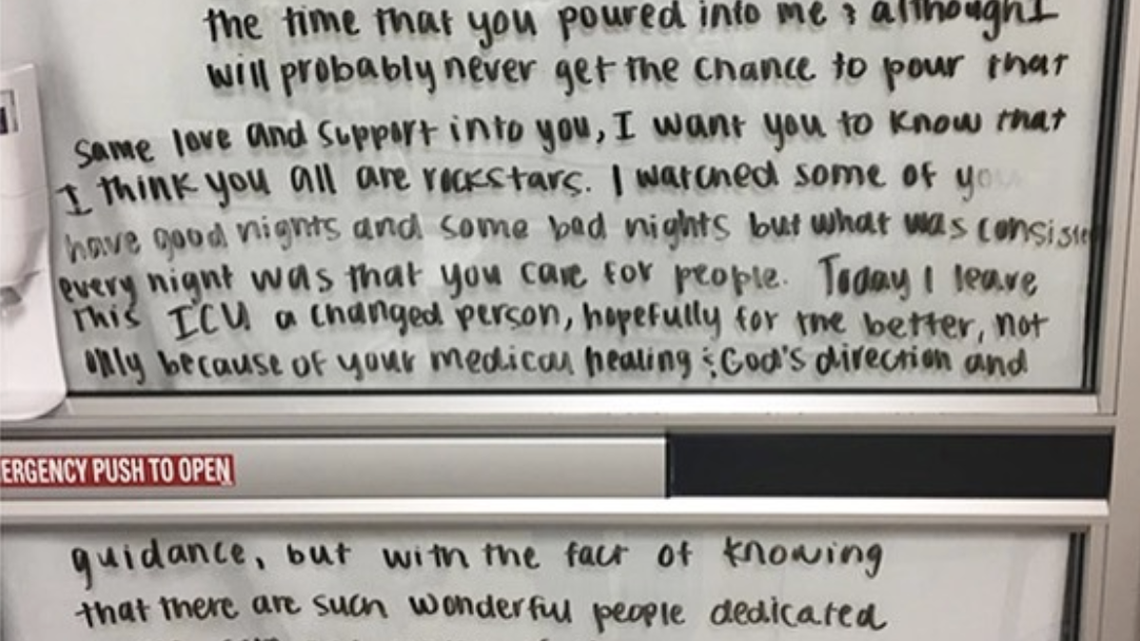 the time that you poured into me & although I
will probably never get the chance to pour that
same love and support into you, I want you to know that
I think you all are rockstars. I watched some of you
have good nights and some bad nights but what was consiste
every night was that you care for people. Today I leave
this ICU a changed person, hopefully for the better, not
only because of your medical healing & God's direction and
ERGENCY PUSH TO OPEN
guidance, but with the fact of knowing
that there are such wonderful people dedicated